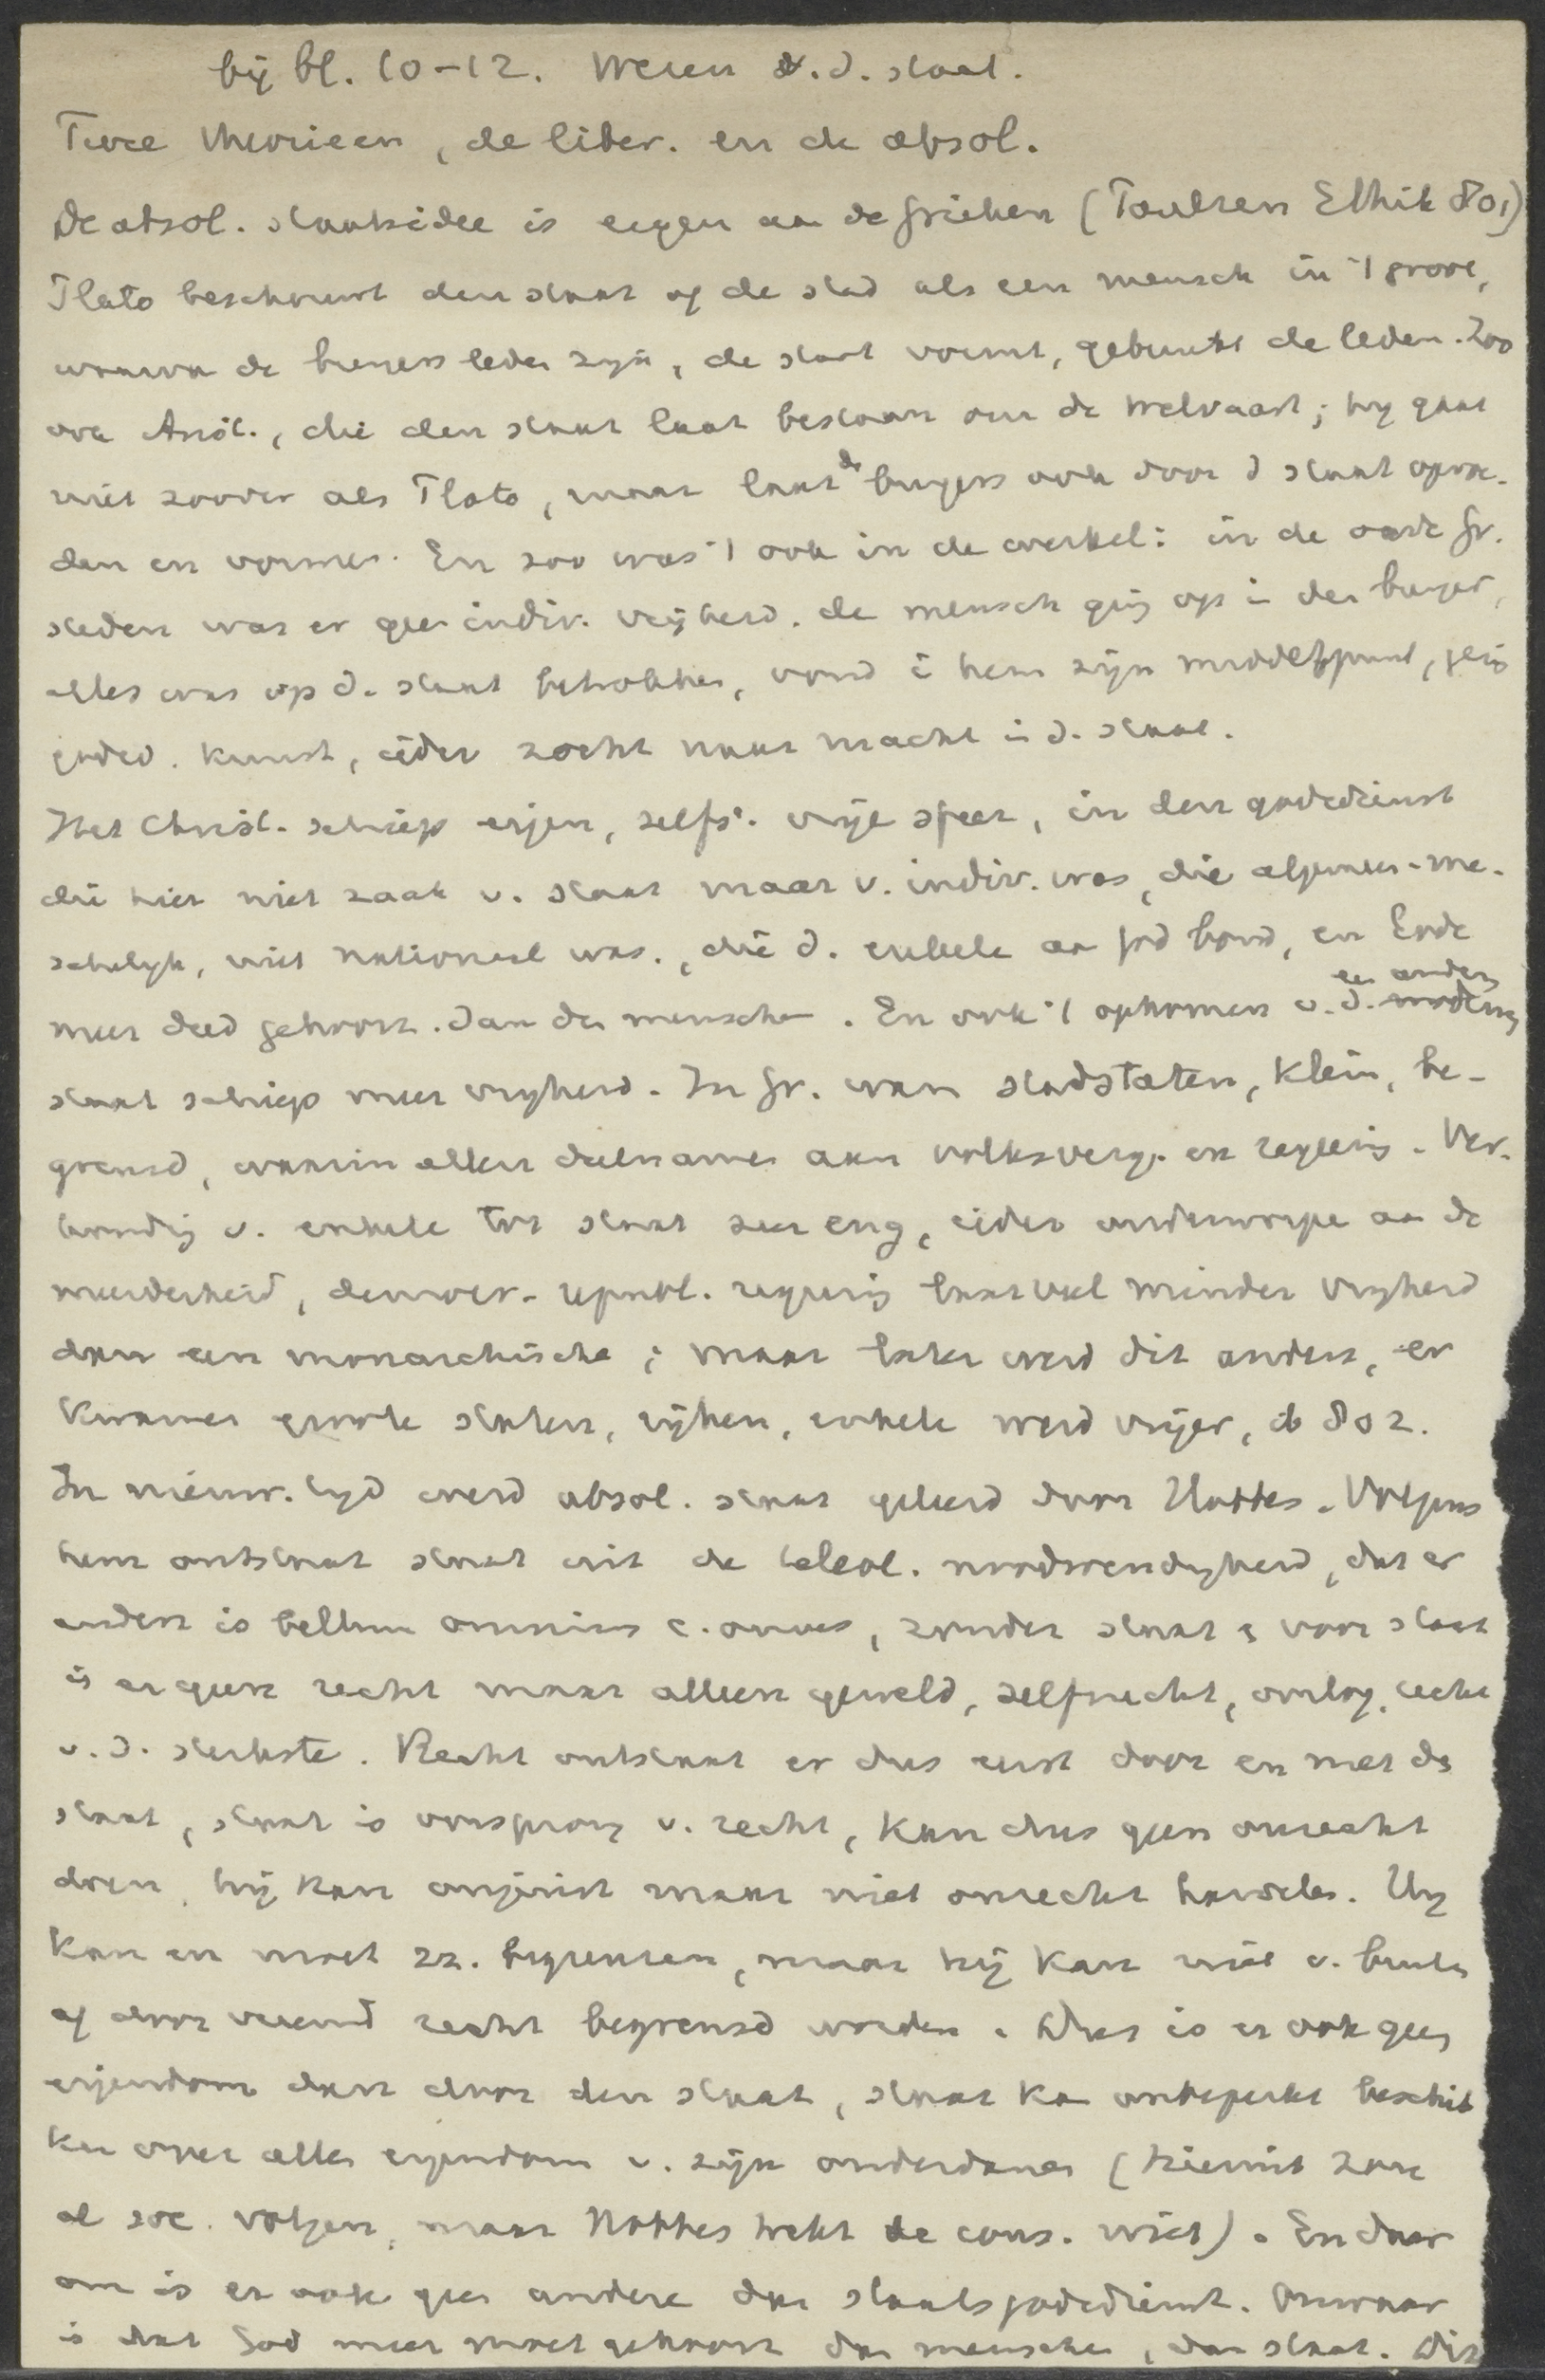 bij bl. 10-12. Wezen v. d. staat.
Twee theorieen, de liber. en de absol.
De absol. staatsidee is eigen aan de Grieken (Paulsen Ethik 801)
Plato beschouwt den staat of de stad als een mensch in 't groot,
waarvan de burgers leden zijn, de staat vormt, gebruikt de leden. Zoo
ook Arist., die den staat laat bestaan om de welvaart; hij gaat
niet zoover als Plato, maar laat de burgers ook door d staat opvoe-
den en vormen. En zoo was 't ook in de werkel: in de oude Gr.
steden was er geen indiv. vrijheid. de mensch ging op in den burger,
alles was op d. staat betrokken, vond i hem zijn middelpunt,
godsd. kunst, ieder zocht naar macht in d. staat.
Het Christ. schiep eigen, zelfst. vrije sfeer, in den godsdienst
die hier niet zaak v. staat maar v. indiv. was, die algemeen-me-
schelijk, niet nationaal was., die d. enkele aan God bond, en Gode
meer deed gehoorz. dan den menschen. En ook 't opkomen v. d. een ander
staat schiep meer vrijheid. In Gr. waren stadstaten, klein, be-
grensd, waarin allen deelnamen aan volksverg. en regering. Ver-
houding v. enkele tot staat zeer eng, ieder onderworpen aan de
meerderheid, democr.- republ. regering laat veel minder vrijheid
dan een monarchische; maar later werd dit anders, er
kwamen groote staten, rijken, enkele werd vrijer, ib 802.
In nieuw. tijd werd absol. staat geleerd door Hobbes. Volgens
hem ontstaat staat uit de teleol. noodwendigheid, dat er
anders is bellum omnium c. omnes, zonder staat & voor staat
is er geen recht maar alleen geweld, zelfrecht, oorlog, recht
v. d. sterkste. Recht ontstaat er dus eerst door en met de
staat, staat is oorsprong v. recht, kan dus geen onrecht
doen, hij kan onjuist maar niet onrecht handelen. Hij
kan en moet zz. begrenzen, maar hij kan niet v. buiten
of door vreemd recht begrensd worden. Dus is er ook geen
eigendom dan door den staat, staat kan onbeperkt beschik
ken over alle eigendom v. zijn onderdanen (hieruit zou
al soc. volgen, maar Hobbes trekt de cons. niet). En daar
om is er ook geen andere dan staatsgodsdienst. Onwaar
is dat God meer moet gehoorz dan menschen, dan staat. Dit